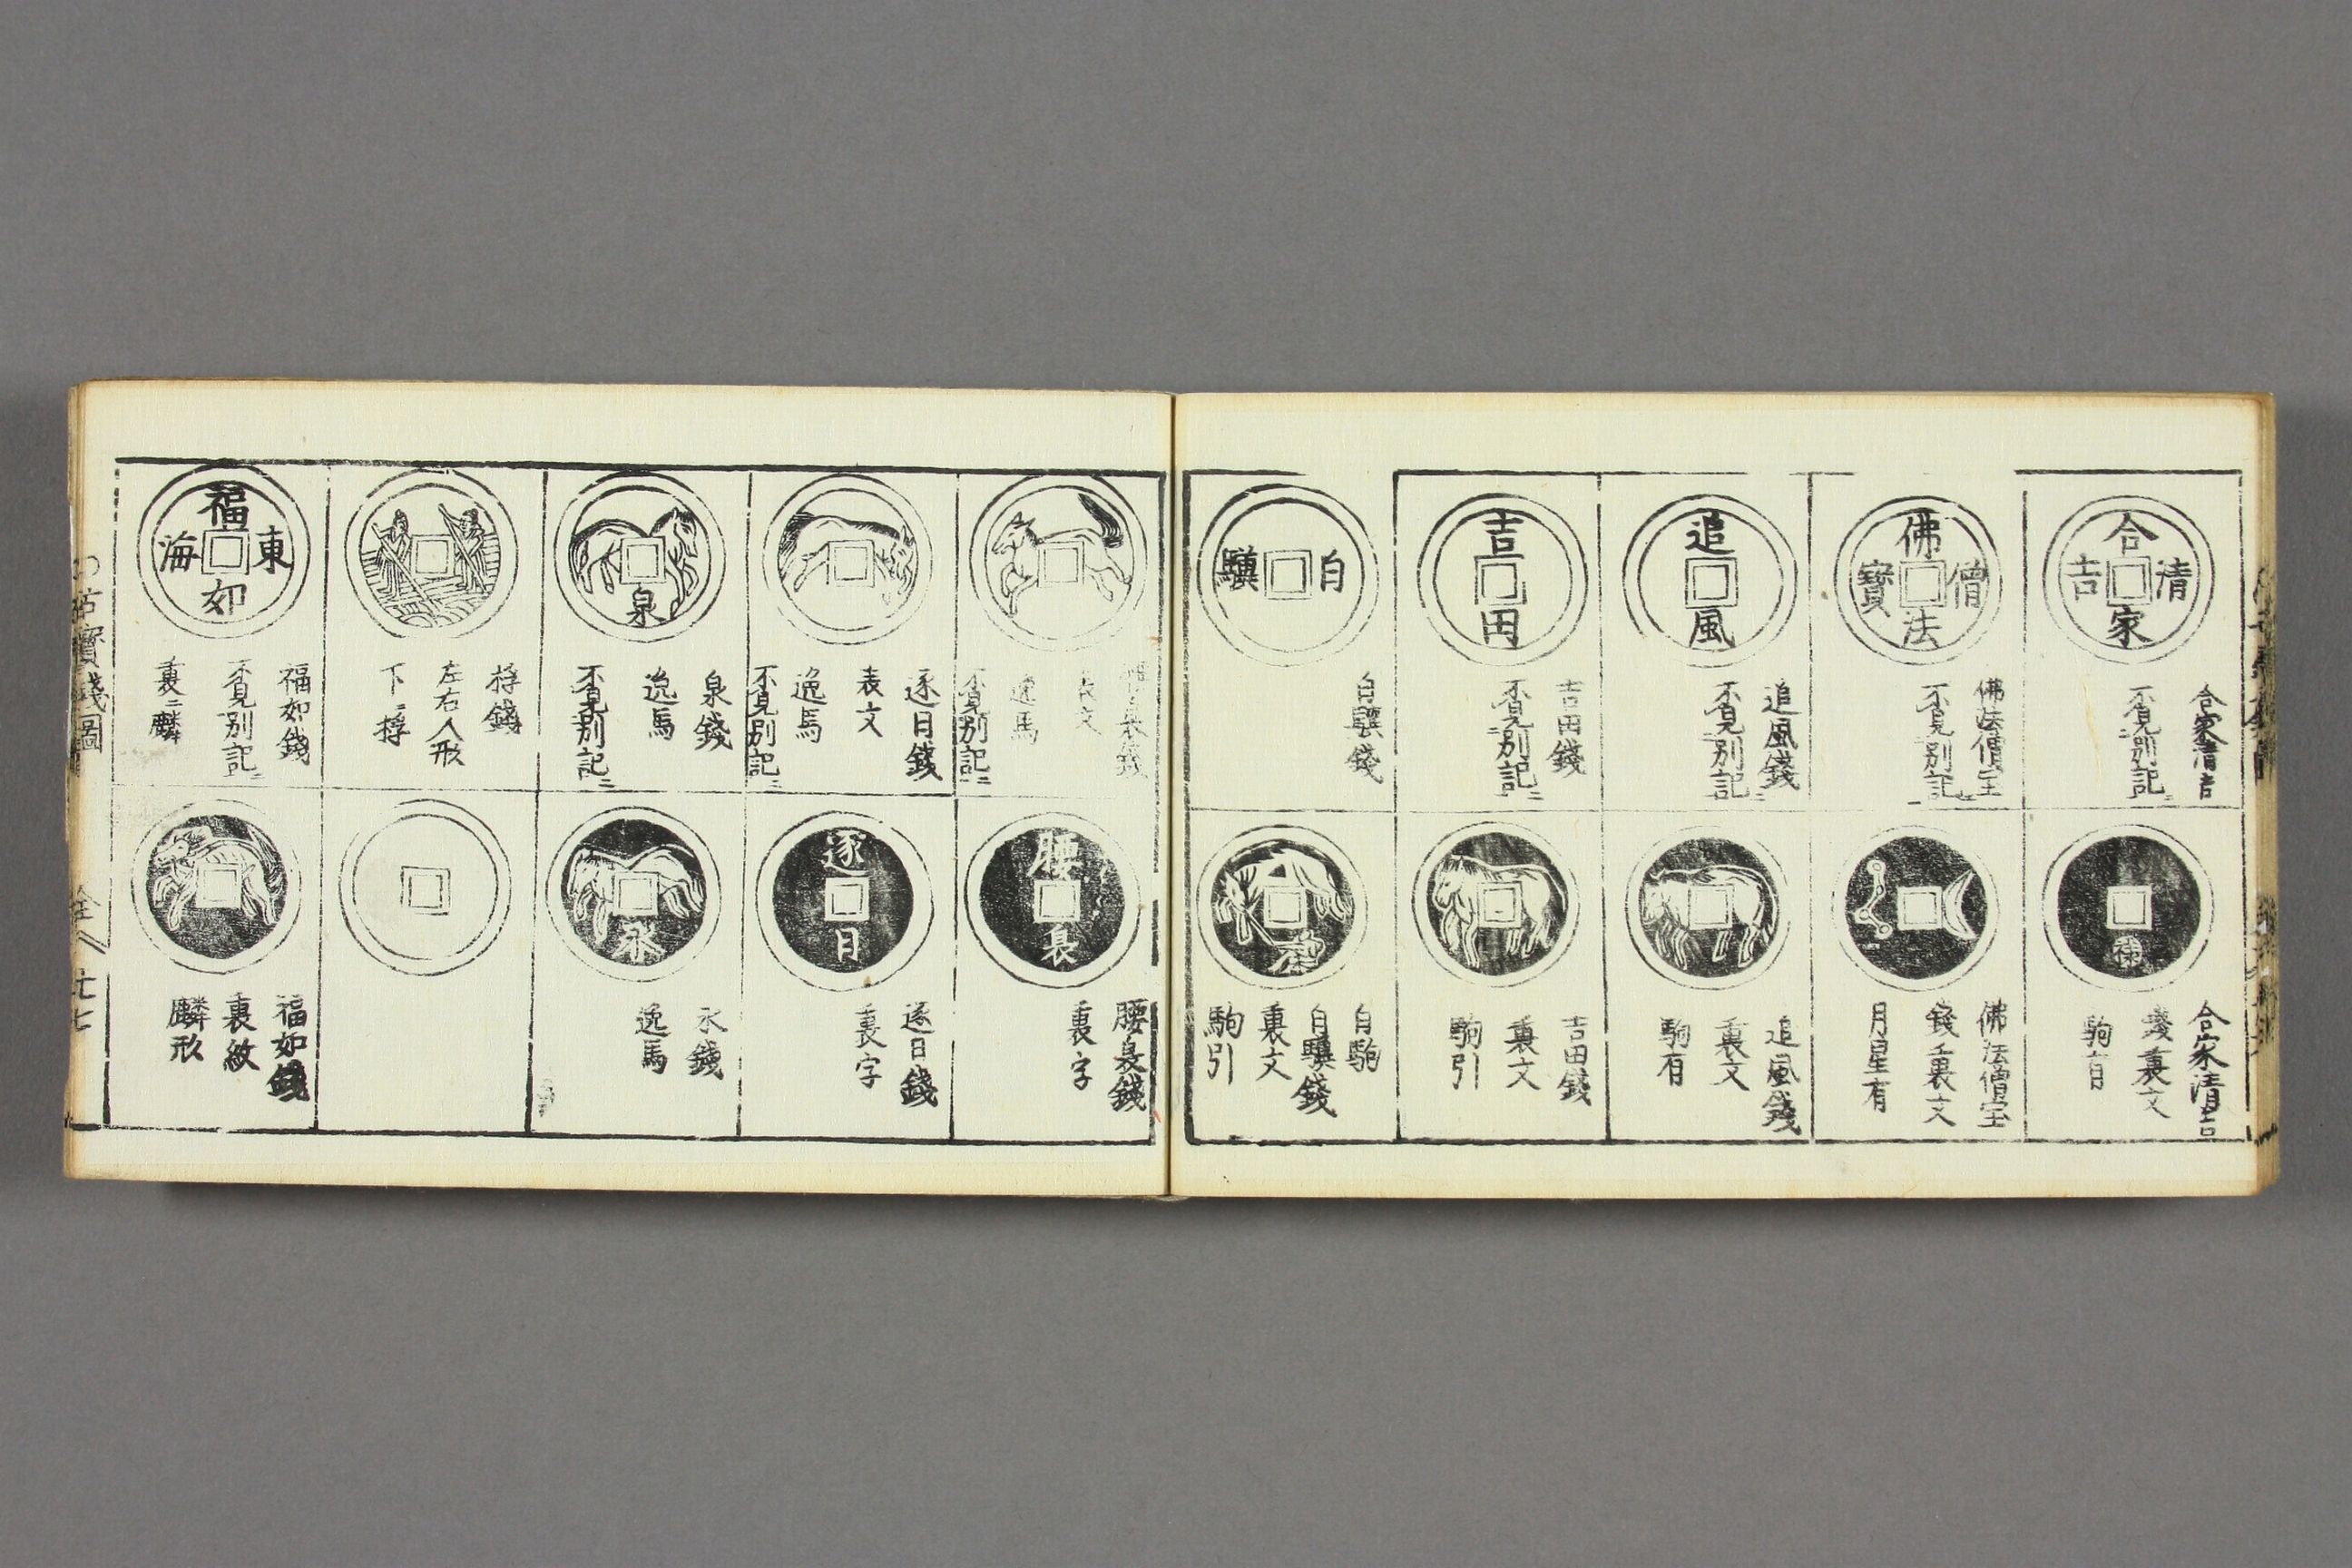 合
家
清
吉
合家清吉
不見別記ニ
佛
法
僧
寳
佛法僧宝
不見別記ニ
追
風
追風錢
不見別記ニ
吉
田
吉田錢
不見別記ニ
白
驥
白驥錢
合家清吉
錢裏文
駒有
佛法僧宝
錢裏文
月星有
追風錢
裏文
駒有
吉田錢
裏文
駒引
白駒
白驥錢
裏文
駒引
表文
逸馬
不見別記ニ
逐日錢
表文
逸馬
不見別記ニ
泉
泉錢
逸馬
不見別記ニ
桴錢
左右人形
下ニ桴
福
如
東
海
福如錢
不見別記ニ
裏ニ麟
腰
裊
腰裊錢
裏字
逐
日
逐日錢
裏字
永
永錢
逸馬
福如錢
裏紋
麟形
寳錢圖